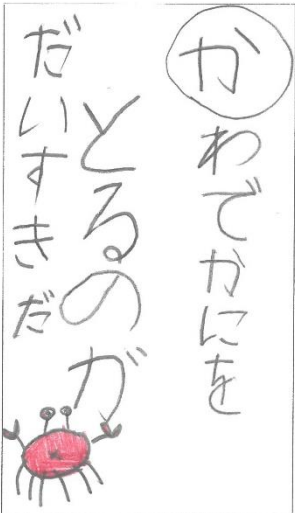 かわでかにを
とるのが
だいすきだ